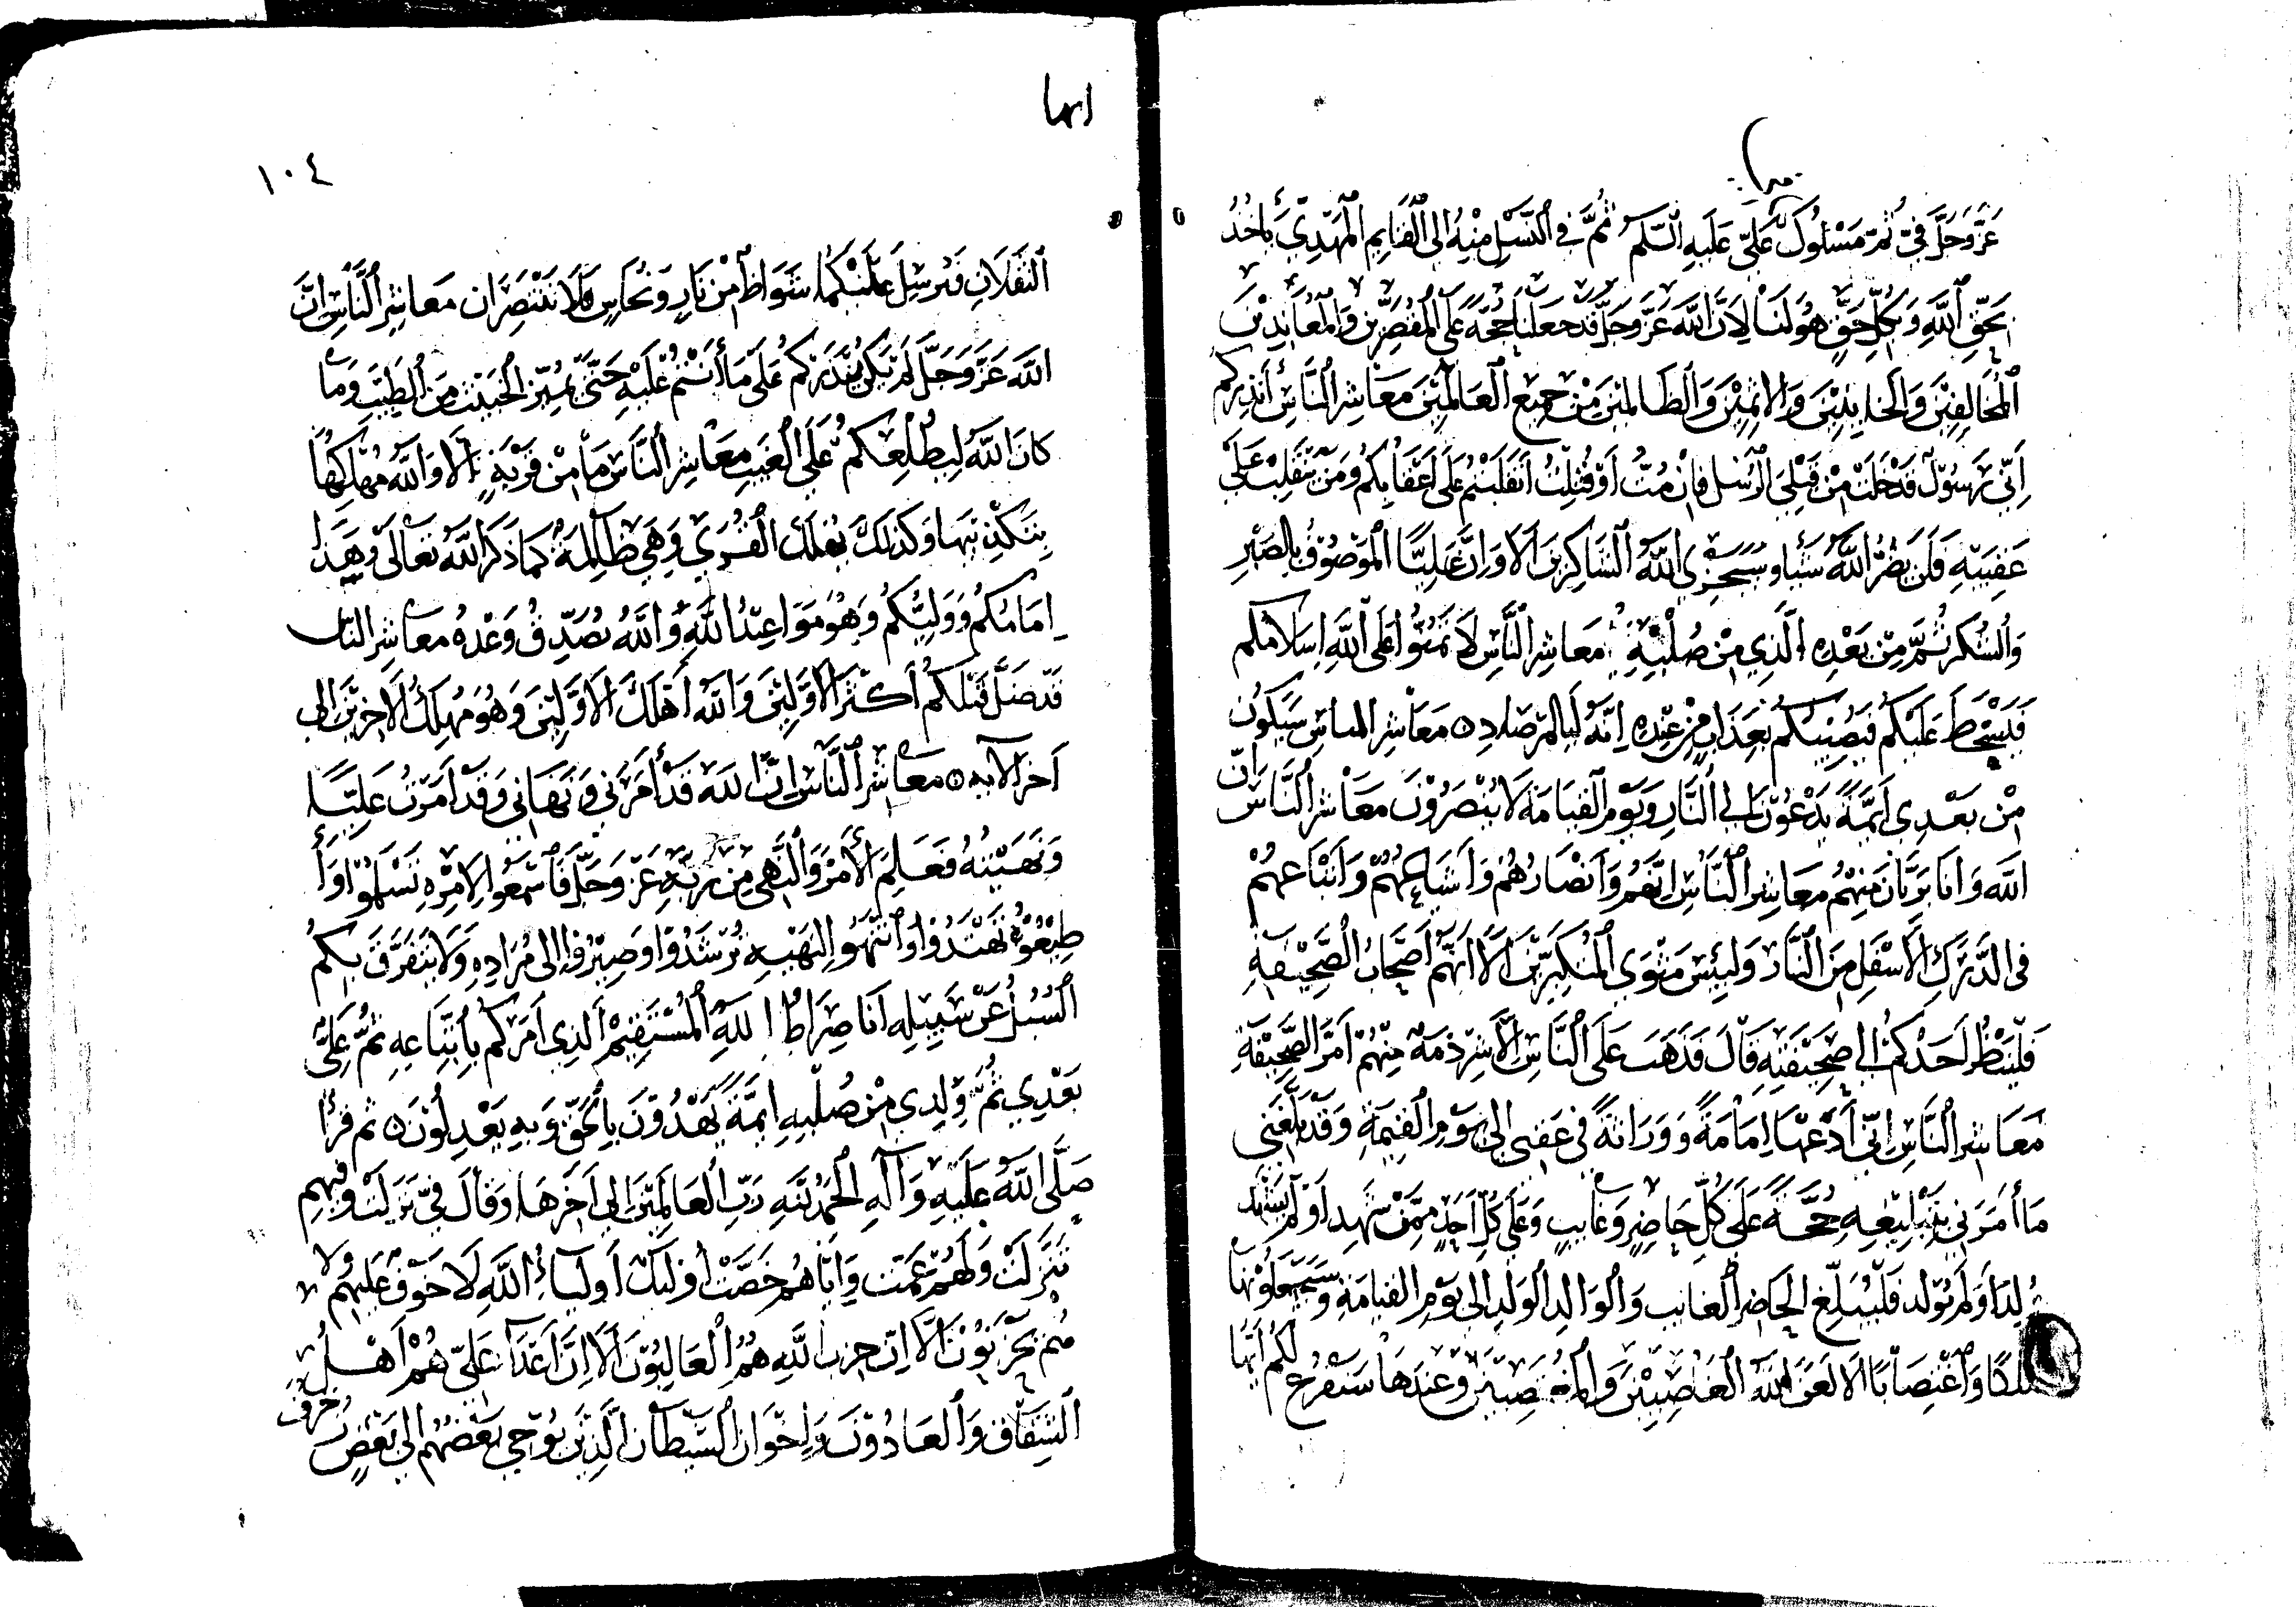 عَزَّ وَجَلَّ فِيَّ ثُمَّ مَسْلُوكٌ عَلِيّ عَلَيهِ السَّلَم ثُمَّ فِي النَّسْلِ مِنْهُ الى القَايِمِ المَهْدِيّ يَأخُذُ
بِحَقِّ اللَّهِ وَبِكُلِّ حَقٍّ هُوَ لَنَا لِاَنَّ اللَّهَ عَزَّ وَجَلَّ قَدْ جَعَلَنَا حُجَّةً عَلَى المُقَصِّرِين وَالمُعَانِدِيْنَ
المُخَالِفِيْنَ وَالخَايِنِيْنَ وَالاثِمِيْنَ وَالظَالِمِيْنَ مِنْ جَمِيعِ العَالَمِيْنَ مَعَاشِرَ النَّاسِ اُنْذِرُكُم
اَنِّي رَسُوْلٌ قَدْ خَلَتْ مِنْ قَبْلِيَ الرُسُل فَاِنْ مُتُّ اَوْ قُتِلْتُ انْقَلَبْتُمْ عَلَى اَعْقَابِكُم وَمَنْ يَنْقَلِبْ عَلَى
عَقِبَيْهِ فَلَنْ يَضُرَّ اللَّهَ شَيْئا وَسَيَجْزِي اللَّهُ الشَاكِرِيْنَ اَلَا وَاِنَّ عَلِيًّا المَوْصُوْفُ بِالصَبْرِ
وَالشُكْرِ ثُمَّ مِنْ بَعْدِهِ الَّذِي مِنْ صُلْبِهِ مَعَاشِرَ النَّاسِ لَا تَمُنُّوا عَلَى اللَّهِ اِسْلَامَكُم
فَيَسْخَطَ عَلَيْكُم فَيُصِيْبَكُم بِعَذَابٍ مِنْ عِنْدِهِ اِنَّهُ لَبِالمِرْصَادِ ۝ مَعَاشِرَ الناسِ سَيَكُون
مِنْ بَعْدِي اَئِمَّةٌ يَدْعُوْنَ اِلَى النَّارِ وَيَوْمَ القِيَامَةِ لَا يُنْصَرُوْنَ مَعَاشِرَ النَّاسِ اِنَّ
اللَّهَ وَاَنَا بَرِيَّانِ مِنْهُم مَعَاشِرَ النَّاسِ اِنَّهُم وَاَنْصَارُهُم وَاَشْيَاعُهُمْ وَاَتْبَاعُهُمْ
فِي الدَّرَكِ الاَسْفَلِ مِنَ النَّارِ وَلَبِئْسَ مَثْوَى المُتَكَبِّرِيْنَ اَلَا اَنَّهُم اَصْحَابُ الصَّحِيْفَةِ
فَلْيَنْظُرْ اَحَدُكُمْ اِلى صَحِيْفَتِهِ قَالَ فَذَهَبَ عَلَى النَّاسِ اِلَّا شِرْذِمَةٌ مِنْهُمْ اَمْرُ الصَّحِيْفَةِ
مَعَاشِرَ النَّاسِ اِنِّي اَدَعُهَا اِمَامَةً وَوِرَاثَةً فِي عَقِبِي اِلَى يَوْمِ القِيمَةِ وَقَدْ بَلَّغْتُ
مَا أُمِرْنِي بِتَبْلِيْغِهِ حُجَّةً عَلَى كُلِّ حَاضِرٍ وَغَايِبٍ وَعَلَى كُلِّ اَحَدٍ مِمَّنْ شَهِدَ اَوْ لَمْ يَشْهَد
وُلِدَ اَوْ لَمْ يُوْلَد فَلْيُبَلِّغِ الحَاضِرُ الغَايِبَ وَالوَالِدُ الوَلَدَ اِلى يَوْمِ القِيَامَةِ وَسَيَجْعَلُوْنَهَا
مُلْكًا وَاغْتِصَابًا اَلَا لَعَنَ اللَّهُ الغَاصِبِيْنَ وَالمُغْتَصِبِيْنَ وَعِنْدَهَا سَنَفْرُغُ لَكُمْ اَيُّهَا
ايها
١٠٤
الثَقَلَانِ فَيُرْسِلُ عَلَيْكُمَا شُوَاظٌ مِنْ نَارٍ وَنُحَاسٌ فَلَا تَنْتَصِرَان مَعاشِرَ النَّاسِ اِنَّ
اللَّهَ عَزَّ وَجَلَّ لَمْ يَكُنْ لِيَذَرَكُمْ عَلَى مَا أَنْتُمْ عَلَيْهِ حَتَّى يَمِيْزَ الخَبِيْثَ مِنَ الطَيِّبِ وَمَا
كَانَ اللَّهُ لِيُطْلِعَكُمْ عَلَى الغَيْبِ مَعَاشِرَ النَّاسِ مَا مِنْ قَرْيَةٍ اِلَّا وَاللَّهُ مُهْلِكُهَا
بِتَكْذِيْبِهَا وَكَذَلِكَ يُهْلِكُ القُرَى وَهِيَ ظَالِمَةٌ كَمَا ذَكَرَ اللَّهُ تَعَالَى وَهَذَا
اِمَامُكُمْ وَوَلِيُّكُمْ وَهُوَ مَوَاعِيْدُ اللَّهِ وَاللَّهُ يُصَدِّقُ وَعْدَهُ مَعاشِرَ النَّاس
قَدْ ضَلَّ قَبْلَكُمْ اَكْثَرُ الاَوَّلِيْنَ وَاللَّهُ اَهْلَكَ الاَوَّلِيْنَ وَهُوَ مُهْلِكُ الآخِرِيْنَ اِلى
اَخِرِ الآيه ۝ مَعَاشِرَ النَّاسِ اِنَّ اللَّهَ قَدْ أَمَرَنِي وَنَهَانِي وَقَدْ اَمَرْتُ عَلِيًّا
وَنَهَيْتُهُ فَعَلِمَ الأَمْرَ وَالنَّهْيَ مِنْ رَبِّهِ عَزَّ وَجَلَّ فَاسْمَعُوا لِاَمْرِهِ تَسْلَمُوا وَأَ
طِيْعُوْهُ تَهْتَدُوا وَانْتَهُوا لِنَهْيِهِ تُرْشَدُوْا وَصِيْرُوا اِلى مُرَادِهِ وَلَا يَتَفَرَّقَ بِكُمُ
السُبُلُ عَنْ سَبِيْلِهِ اَنَا صِرَاطُ اللَّهِ المُسْتَقِيْمُ الَّذِي اَمَرَكُم بِاِتِّبَاعِهِ ثُمَّ عَلِيٌّ
بَعْدِي ثُمَّ وُلْدِي مِنْ صُلْبِهِ اَئِمَّةً يَهْدُوْنَ بِالحَقِّ وَبِهِ يَعْدِلُوْنَ ۝ ثم قَرَأَ
صَلَّى اللَّهُ عَلَيْهِ وَآلِهِ الحَمْدُ لِلَّهِ رَبِّ العَالَمِيْنَ اِلى اَخِرِهَا وَقَالَ فِيَّ نَزَلَتْ وَفِيْهِم
نَزَلَتْ وَلَهُمْ عَمَّتْ وَاِيَّاهُم خَصَّتْ اُوْلَئِكَ اَوْلِيَاءُ اللَّهِ لَا خَوْفٌ عَلَيْهِمْ وَلَا
هُمْ يَحْزَنُوْنَ اَلَا اِنَّ حِزْبَ اللَّهِ هُمُ الغَالِبُوْنَ اَلَا اِنَّ اَعْدَاءَ عَلِيٍّ هُمْ اَهْلُ
الشِقَاقِ وَالعَادُوْنَ وَاِخْوَانُ الشَيْطَانِ الَّذِيْنَ يُوْحِي بَعْضُهُمْ اِلى بَعْضٍ زُخْرُفَ